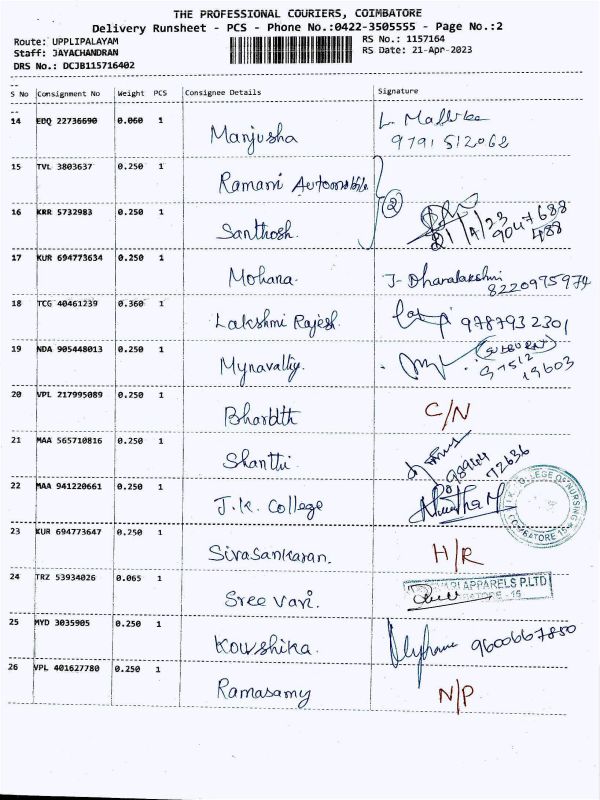 THE PROFESSIONAL COURIERS, COIMBATORE
Delivery Runsheet - PCS - Phone No.:0422-3505555 - Page No.:2
Route: UPPLIPALAYAM RS No.: 1157164
Staff: JAYACHANDRAN RS Date: 21-Apr-2023
DRS No.: DCJB115716402
S No Consignment No Weight PCS Consignee Details Signature
14 EDQ 22736690 0.060 1 Manjusha L. Mallika
9791512062
15 TVL 3803637 0.250 1 Ramani Automobile
2
16 KRR 5732983 0.250 1 Santhosh. 21/4/23 9047688
488
17 KUR 694773634 0.250 1 Mohana. J- Dhanalakshmi
8220975974
18 TCG 40461239 0.360 1 Lakshmi Rajesh. 9787932301
19 NDA 905448013 0.250 1 Mynavalliy. 97512
19603
20 VPL 217995089 0.250 1 Bharbtth C/N
21 MAA 565710816 0.250 1 Shanthi. 98944
72636
22 MAA 941220661 0.250 1 J.K. College
COLLEGE OF NURSING
COIMBATORE 15
23 KUR 694773647 0.250 1 Sivasankaran. H/R
24 TRZ 53934026 0.065 1 Sree vari. APPARELS P.LTD
- 15
25 MYD 3035905 0.250 1 Kowshika. 9600667850
26 VPL 401627780 0.250 1 Ramasamy N/P